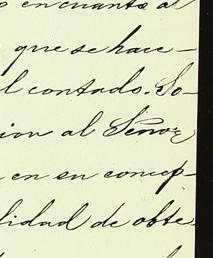 en cuanto al
que se hace-
l contado. So-
ion al Señor
en su concep-
lidad de obte